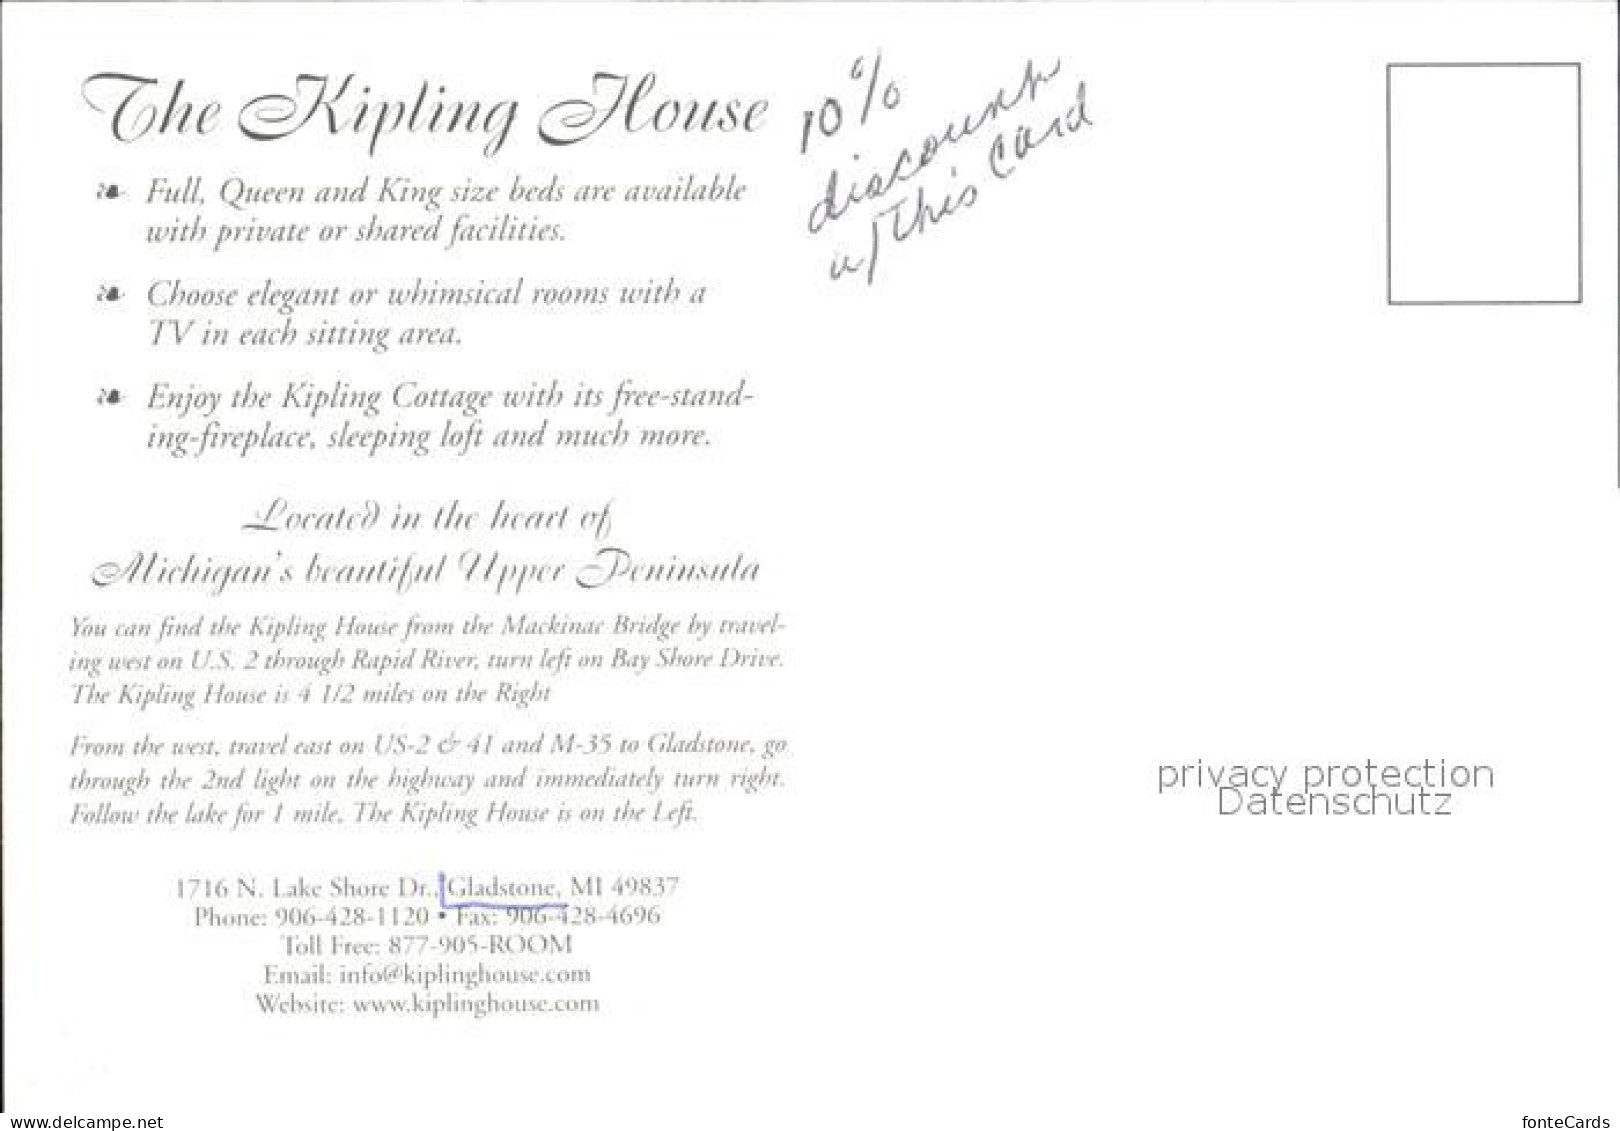 The Kipling House
Full, Queen and King size beds are available
with private or shared facilities.
Choose elegant or whimsical rooms with a
TV in each sitting area.
Enjoy the Kipling Cottage with its free-stand-
ing-fireplace, sleeping loft and much more.
Located in the heart of
Michigan's beautiful Upper Peninsula
You can find the Kipling House from the Mackinac Bridge by travel-
ing west on U.S. 2 through Rapid River, turn left on Bay Shore Drive.
The Kipling House is 4 1/2 miles on the Right
From the west, travel east on US-2 & 41 and M-35 to Gladstone, go
through the 2nd light on the highway and immediately turn right.
Follow the lake for 1 mile, The Kipling House is on the Left.
1716 N. Lake Shore Dr., Gladstone, MI 49837
Phone: 906-428-1120 • Fax: 906-428-4696
Toll Free: 877-905-ROOM
Email: info@kiplinghouse.com
Website: www.kiplinghouse.com
10%
discount
w/this card
privacy protection
Datenschutz
www.delcampe.net
fonteCards